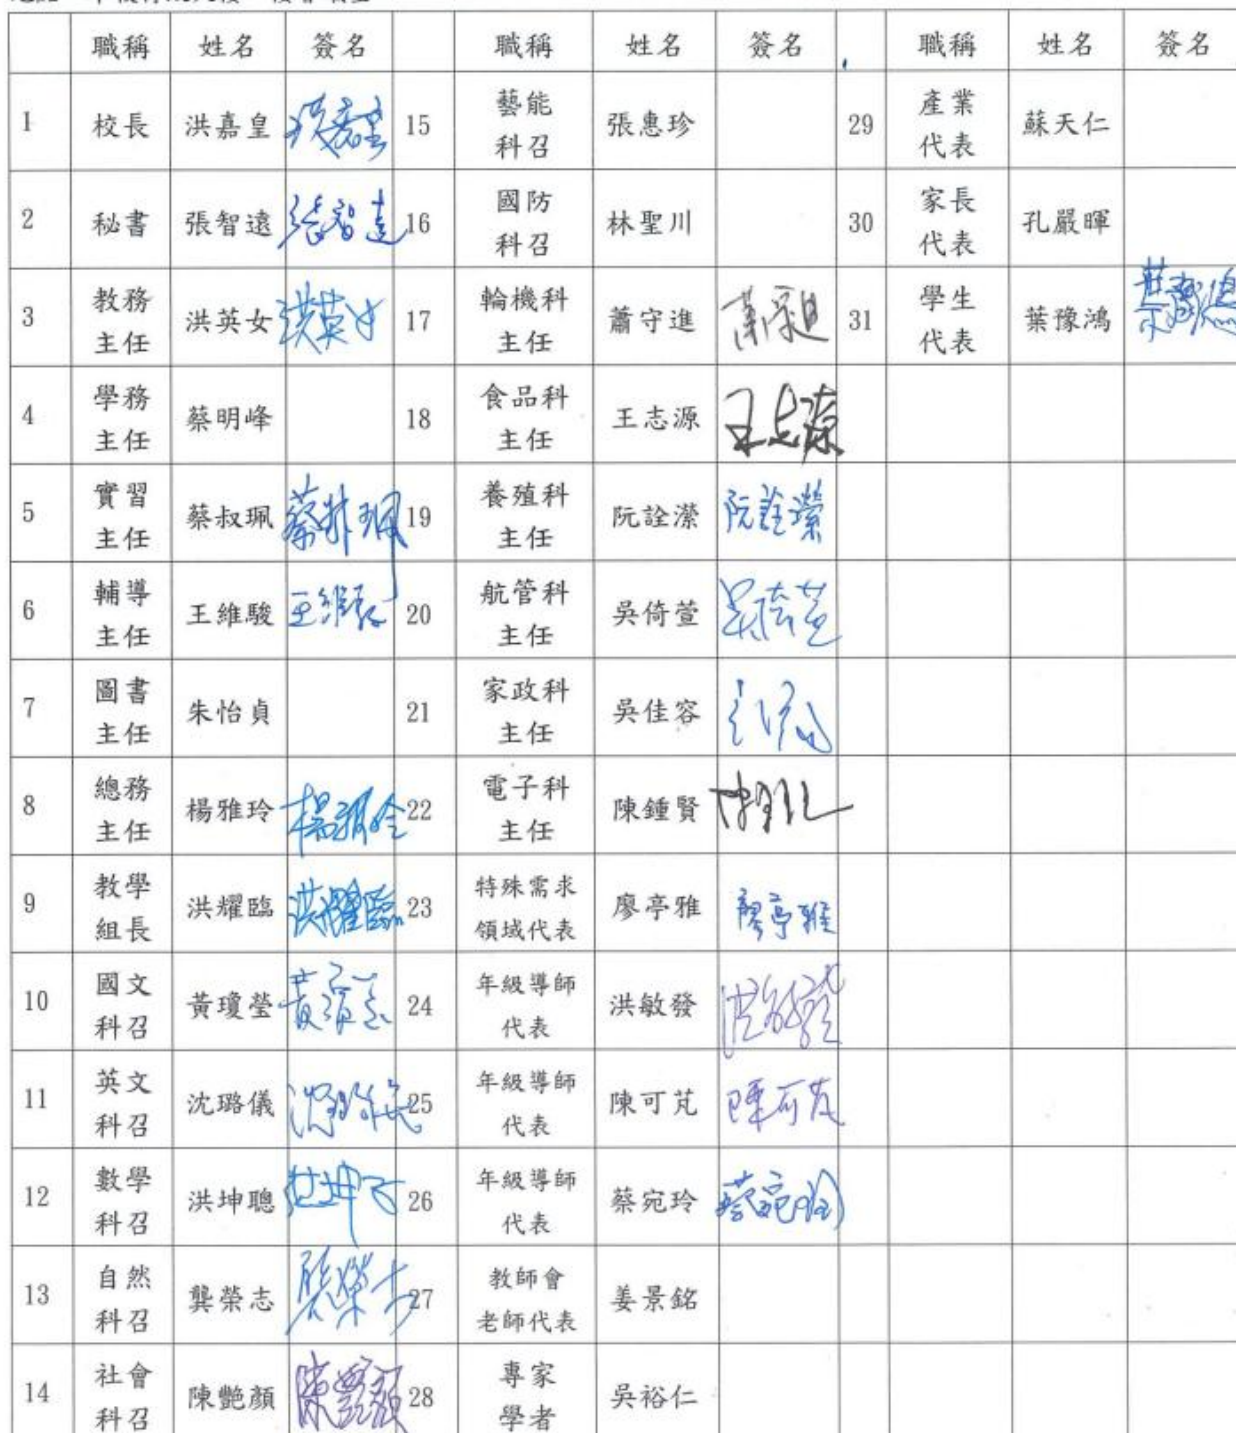 職稱 姓名 簽名 職稱 姓名 簽名 職稱 姓名 簽名
1 校長 洪嘉皇 洪嘉皇 15 藝能科召 張惠珍 29 產業代表 蘇天仁
2 秘書 張智遠 張智遠 16 國防科召 林聖川 30 家長代表 孔嚴暉
3 教務主任 洪英女 洪英女 17 輪機科主任 蕭守進 31 學生代表 葉豫鴻
4 學務主任 蔡明峰 18 食品科主任 王志源 王志源
5 實習主任 蔡叔珮 蔡叔珮 19 養殖科主任 阮詮瀠 阮詮瀠
6 輔導主任 王維駿 王維駿 20 航管科主任 吳倚萱 吳倚萱
7 圖書主任 朱怡貞 21 家政科主任 吳佳容
8 總務主任 楊雅玲 楊雅玲 22 電子科主任 陳鍾賢
9 教學組長 洪耀臨 洪耀臨 23 特殊需求領域代表 廖亭雅 廖亭雅
10 國文科召 黃瓊瑩 黃瓊瑩 24 年級導師代表 洪敏發 洪敏發
11 英文科召 沈璐儀 沈璐儀 25 年級導師代表 陳可芃 陳可芃
12 數學科召 洪坤聰 26 年級導師代表 蔡宛玲 蔡宛玲
13 自然科召 龔榮志 龔榮志 27 教師會老師代表 姜景銘
14 社會科召 陳艷顏 陳艷顏 28 專家學者 吳裕仁